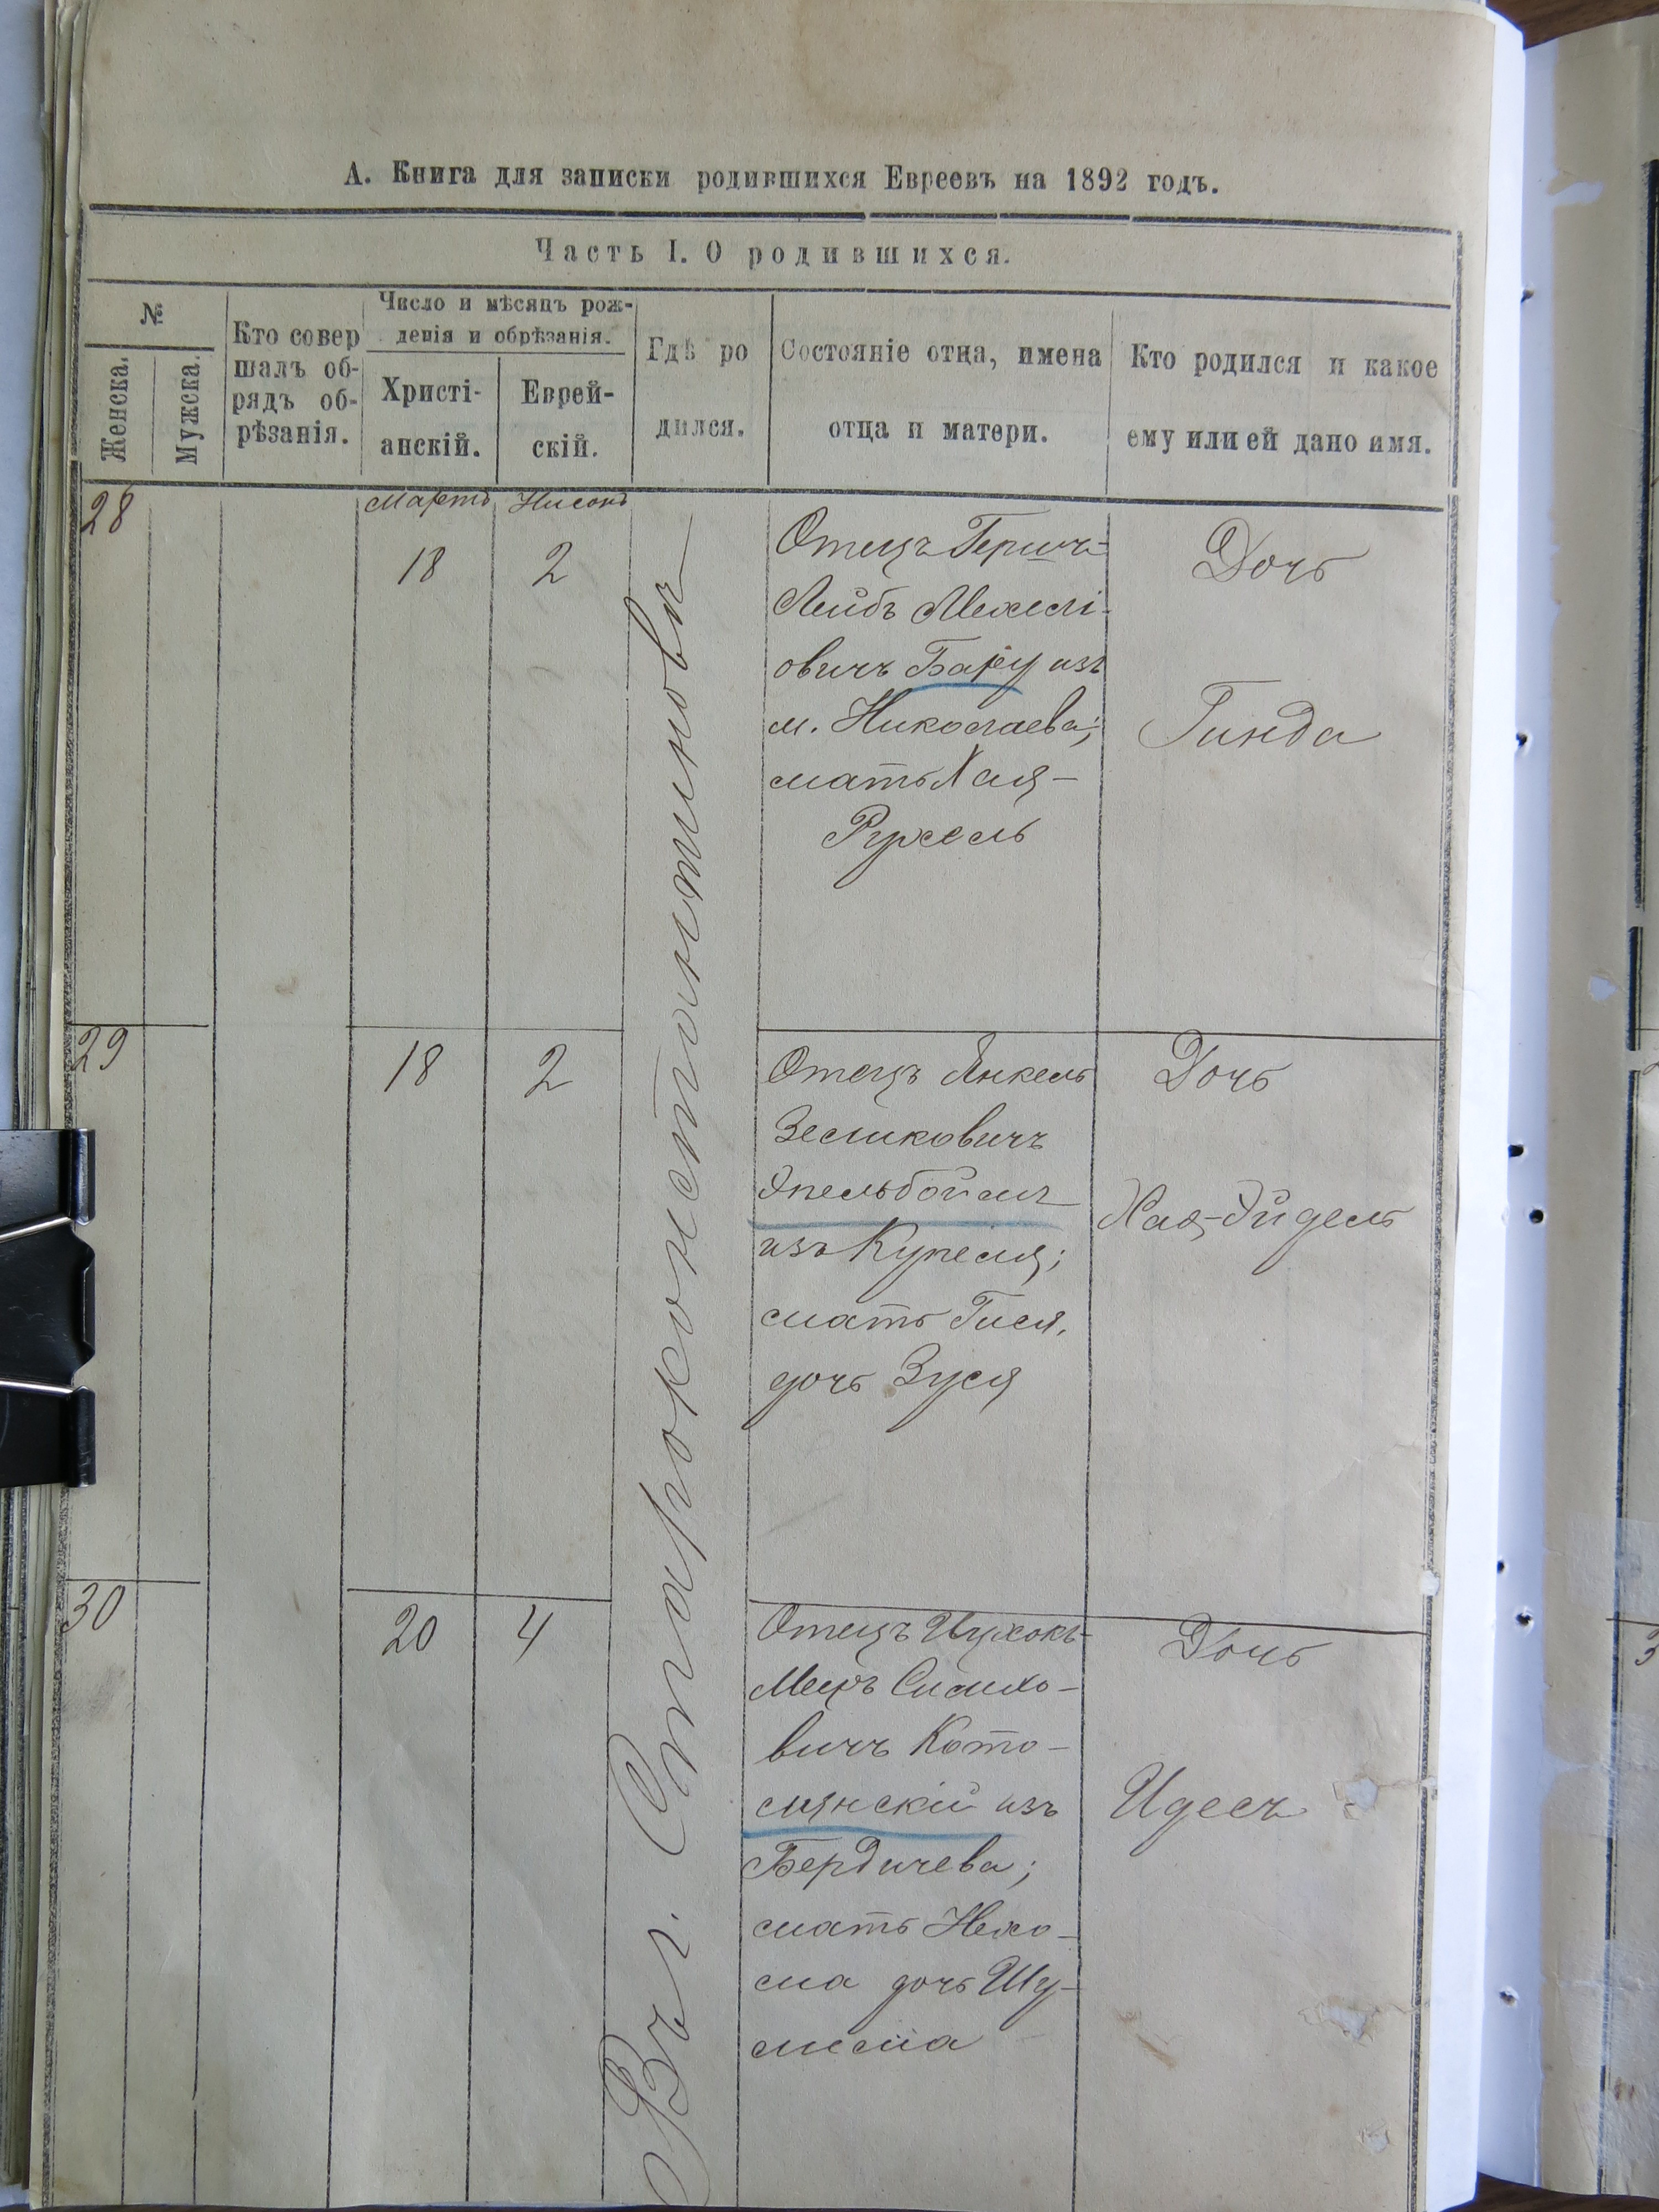 А. Книга для записки родившихся Евреевъ на 1892 годъ.
Часть I. О родившихся.
№
Женска.
Мужска.
Кто совер
шалъ об-
рядъ об-
рѣзанія.
Число и мѣсяцъ рож-
денія и обрѣзанія.
Христі-
анскій.
Еврей-
скій.
Гдѣ ро
дился.
Состояніе отца, имена
отца и матери.
Кто родился и какое
ему или ей дано имя.
Въ г. Староконстантиновѣ
28
Мартъ
Нисонъ
18
2
Отецъ Гершъ-
Лейбъ Мехелі-
овичъ Бару изъ
м. Николаева;
мать Хая-
Рухель
Дочь
Гинда
29
18
2
Отецъ Янкель
Зеликовичъ
Эпельбоймъ
изъ Купеля;
мать Гися,
дочь Зуся
Дочь
Хая-Эйдель
30
20
4
Отецъ Ицхокъ-
Меиръ Симхо-
вичъ Кото-
лянскій изъ
Бердичева;
мать Нехо-
ма дочь Шу-
лима
Дочь
Идесъ